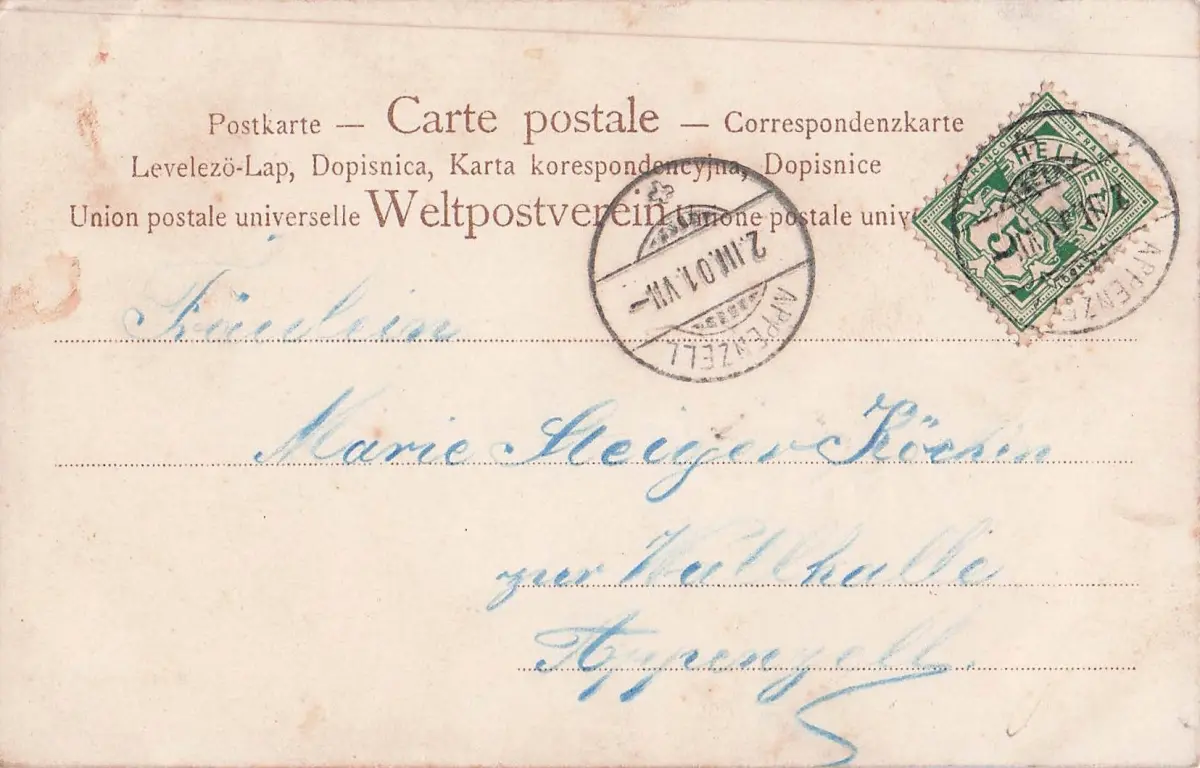 Postkarte — Carte postale — Correspondenzkarte
Levelezö-Lap, Dopisnica, Karta korespondencyjna, Dopisnice
Union postale universelle Weltpostverein Unione postale univ
FRANCO HELVETIA FRANCO
5
APPENZELL
2.III.01.VII-
APPENZELL
Fräulein
Marie Steiger Köchin
zur Wallhalle
Appenzell.